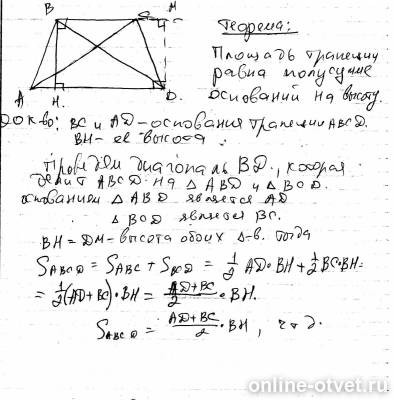 B C M
Теорема:
Площадь трапеции
равна полусумме
оснований на высоту.
A H D
Док-во: BC и AD - основания трапеции ABCD.
BH - её высота
Проведём диагональ BD., которая
делит ABCD на △ABD и △BCD.
основанием △ABD является AD
△BCD является BC.
BH = DM - высота обоих △-в. тогда
S_ABCD = S_ABC + S_BCD = 1/2 AD·BH + 1/2 BC·BH =
= 1/2(AD+BC)·BH = (AD+BC)/2 · BH.
S_ABCD = (AD+BC)/2 · BH, чтд.
online-otvet.ru